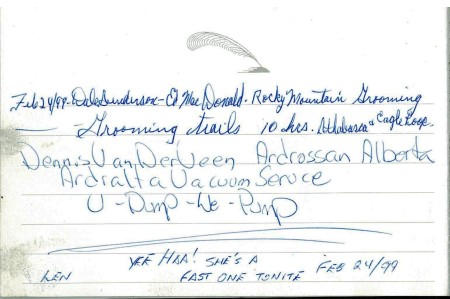 Feb 24/99 - Dale Gunderson - Ed MacDonald - Rocky Mountain Grooming
- Grooming trails 10 hrs. Athabasca & Eagle Loop.
Dennis Van DerVeen Ardrossan Alberta
Ardralta Vacuum Service
U-Dump-We-Pump
YEE HAA! SHE'S A
FAST ONE TONITE FEB 24/99
LEN